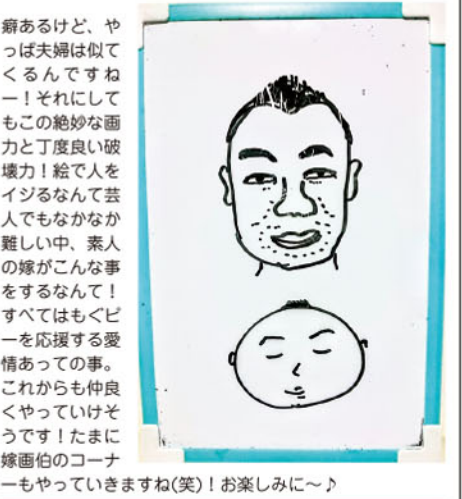 癖あるけど、や
っぱ夫婦は似て
くるんですね
ー！それにして
もこの絶妙な画
力と丁度良い破
壊力！絵で人を
イジるなんて芸
人でもなかなか
難しい中、素人
の嫁がこんな事
をするなんて！
すべてはもぐピ
ーを応援する愛
情あっての事。
これからも仲良
くやっていけそ
うです！たまに
嫁画伯のコーナ
ーもやっていきますね(笑)！お楽しみに〜♪